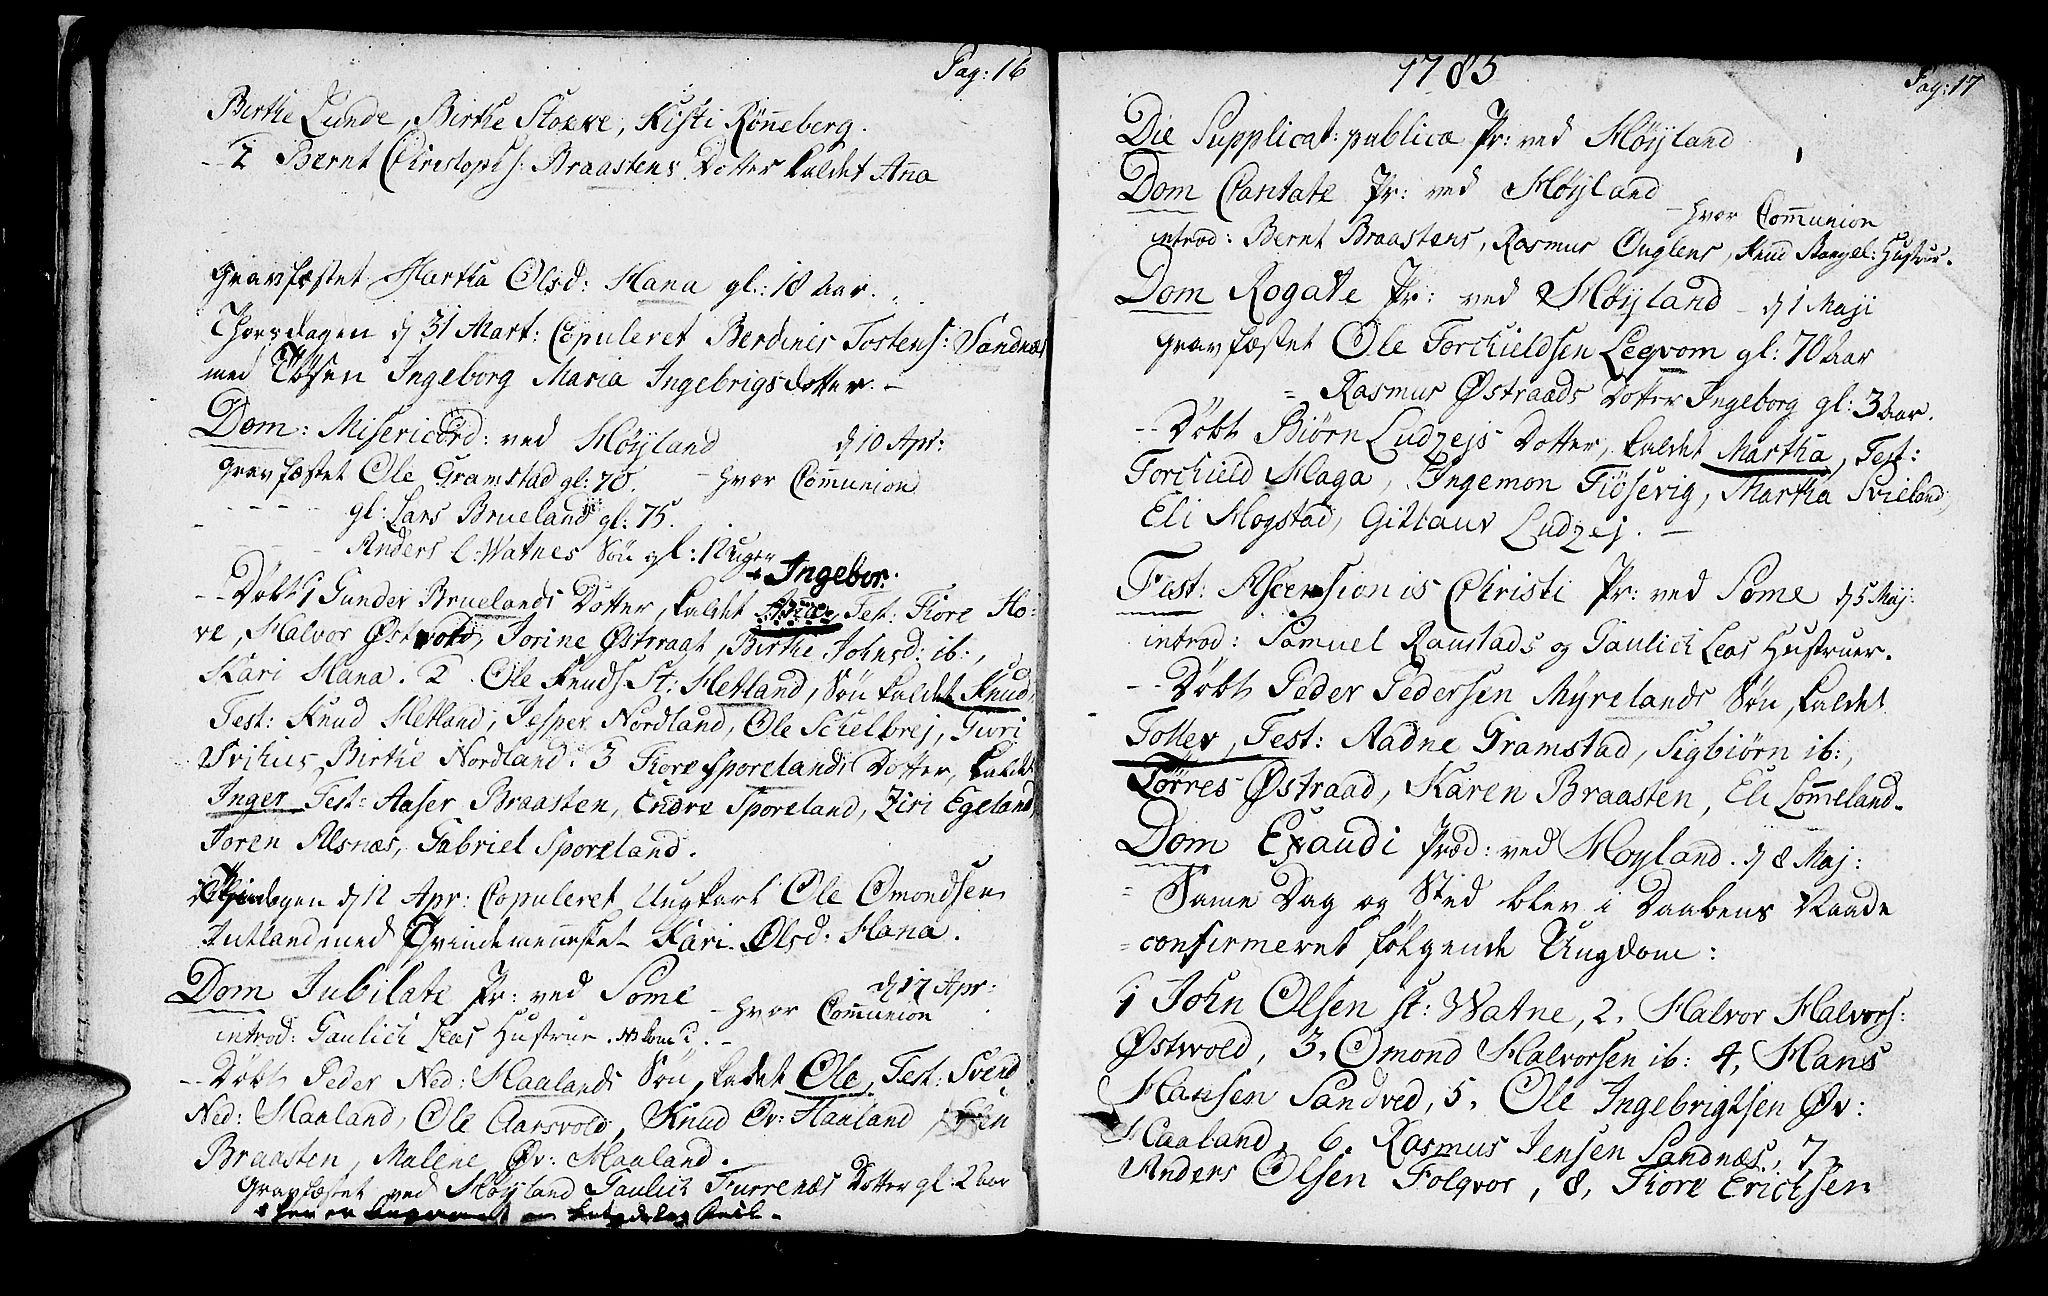 Pag: 16
Birthe Lunde, Birthe Stokke, Kisti Rön̄eberg.
-- 7 Bernt Christophs: Braastens Dotter kaldet An̄a
gravfæstet Martha Olsd: Hana gl: 18 Aar.
Thorsdagen d 31 Mart: Copuleret Berdines Tostens: Sandnæs
med Tösen Ingeborg Maria Ingebrigsdotter. -
Dom: Misericord: ved Höyland d 10 Apr:
gravfæstet Ole Gramstad gl: 70. - hvor Com̄union
- - - - - gl: Lars Brueland gl: 75.
- - - - Anders l: Watnes Sön gl: 12 Uger
+ Ingebor:
-- Döbt 1 Gunder Bruelands Dotter, kaldet Test: Tore Ho-
ve, Halvor Östvold, Jorine Östraat, Birthe Johnsd: ib:,
Kari Hana. 2 Ole Knuds: St: Hetland, Sön kaldet Knud,
Test: Knud Hetland, Jesper Nordland, Ole Schelbrej, Guri
Svihus, Birthe Nordland. 3 Tore Sporelands Dotter, kaldet
Inger Test: Aaser Braasten, Endre Sporeland, Ziri Egeland,
Joren Alsnæs, Gabriel Sporeland.
d 12 Apr: Copuleret Ungkarl Ole Omondsen
Jutland med Qvindemen̄esket Kari Olsd: Hana.
Dom Jubilate Pr: ved Some d 17 Apr:
- hvor Com̄union
introd: Gaulich Leas Hustrue.
-- Döbt Peder Ned: Haalands Sön, kaldet Ole, Test: Svend
Ned: Haaland, Ole Aarsvold, Knud Ov: Haaland,
Braasten, Malene Øv: Haaland.
gravfæstet ved Höyland Gaulich Furrenæs Dotter gl: 2 Aar
1785
Pag: 17
Die Supplicat: publicæ Pr: ved Höyland
Dom Cantate Pr: ved Höyland
- hvor Com̄union
introd: Bernt Braastens, Rasmus Ouglens, Knud Stangel: Hustrue.
Dom Rogate Pr: ved Höyland - d 1 Maji
gravfæstet Ole Torchieldsen Leqvom gl: 70 Aar
= Rasmus Østraads Dotter Ingeborg gl: 3 Aar.
-- Döbt Biörn Ludzejs Dotter, kaldet Martha, Test:
Torchield Haga, Ingemon Tiösevig, Martha Svieland,
Eli Hogstad, Gitlaus Ludzej. -
Fest: Ascensionis Christi Pr: ved Some d 5 Maj:
introd: Samuel Raustads og Gaulich Leas Hustruer.
-- Döbt Peder Pedersen Myrelands Sön, kaldet
Tollev, Test: Aadne Gramstad, Sigbiörn ib:,
Törres Østraad, Karen Braasten, Eli Lom̄eland.
Dom Exaudi Præd: ved Höyland. d 8 Maj:
= Sam̄e Dag og Sted blev i Daabens Naade
= confirmeret fölgende Ungdom:
1 John Olsen st: Watne, 2. Halvor Halvors:
Østvold, 3. Omond Halvorsen ib: 4, Hans
Hansen Sandved, 5. Ole Ingebrigtsen Øv:
Haaland, 6. Rasmus Jensen Sandnæs, 7.
Anders Olsen Folqvor, 8. Tore Erichsen